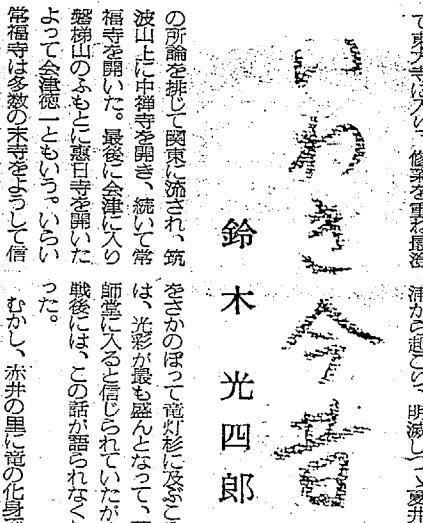 いわき今昔
鈴木光四郎
て東大寺に入り、修業を重ね最澄
の所論を排じて関東に流され、筑
波山上に中禅寺を開き、続いて常
福寺を開いた。最後に会津に入り
磐梯山のふもとに惠日寺を開いた
よって会津徳一ともいう。いらい
常福寺は多数の末寺をようして信
浦から起こり、明滅しつゝ夏井
をさかのぼって竜灯杉に及ぶこ
は、光彩が最も盛んとなって、
師堂に入ると信じられていたが
戦後には、この話が語られなく
った。
むかし、赤井の里に竜の化身